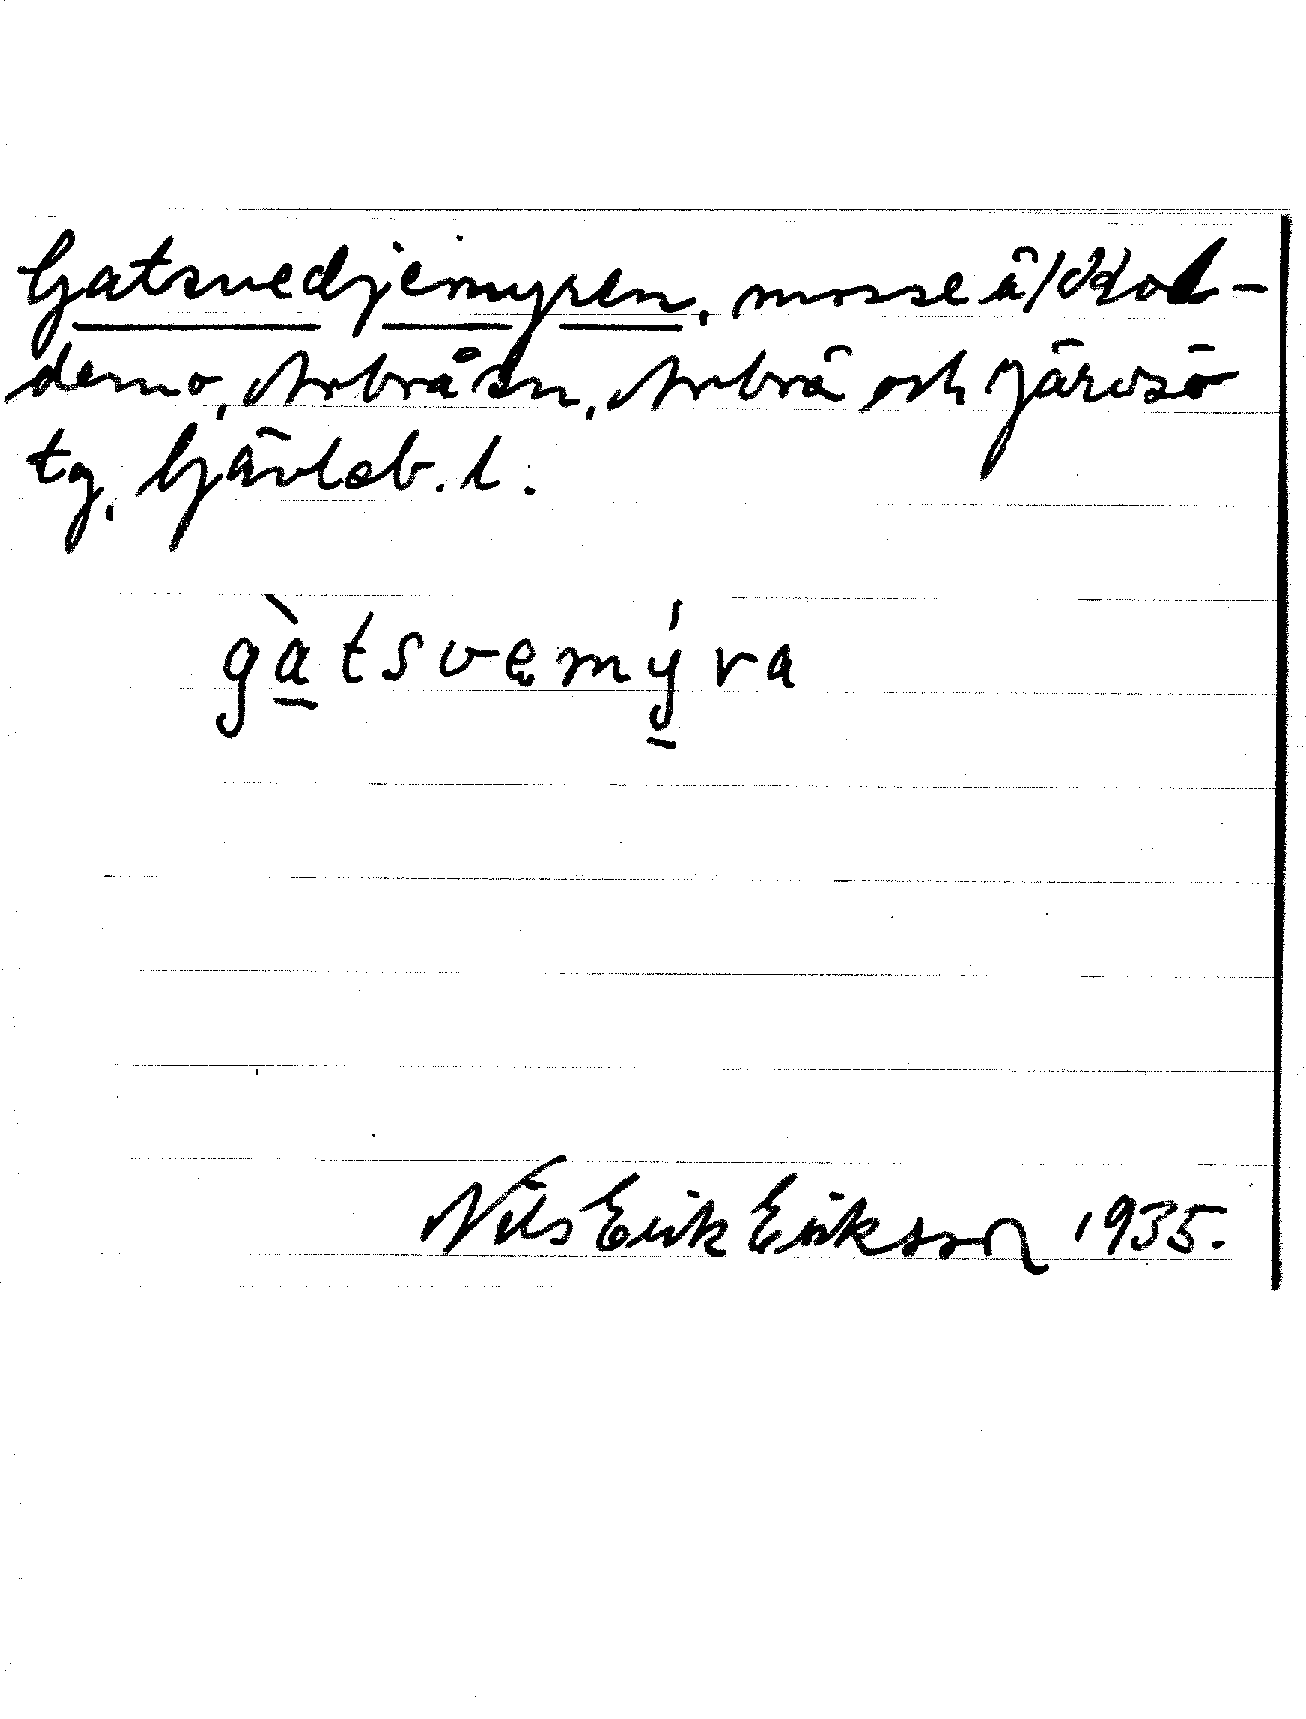 Gatsvedjemyren, mosse å Kol-
demo, Arbrå sn, Arbrå och Järvsö
tg, Gävleb. l.
gàtsvęmýra
Nils Erik Eriksson 1935.